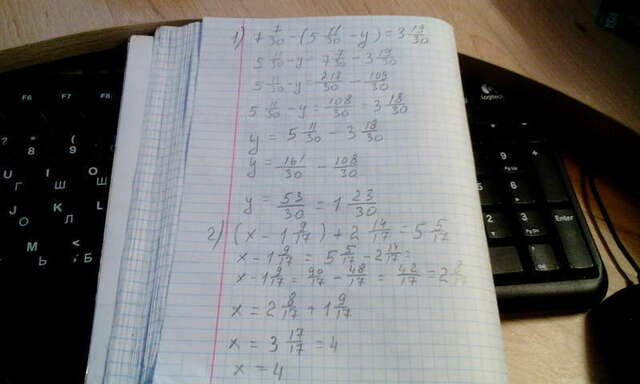 1) 7 7/30 - (5 11/30 - y) = 3 19/30
5 11/30 - y = 7 7/30 - 3 19/30
5 11/30 - y = 217/30 - 109/30
5 11/30 - y = 108/30 = 3 18/30
y = 5 11/30 - 3 18/30
y = 161/30 - 108/30
y = 53/30 = 1 23/30
2) (x - 1 9/17) + 2 14/17 = 5 5/17
x - 1 9/17 = 5 5/17 - 2 14/17 =
x - 1 9/17 = 90/17 - 48/17 = 42/17 = 2 8/17
x = 2 8/17 + 1 9/17
x = 3 17/17 = 4
x = 4
F6
F7
F8
Logitech
Enter